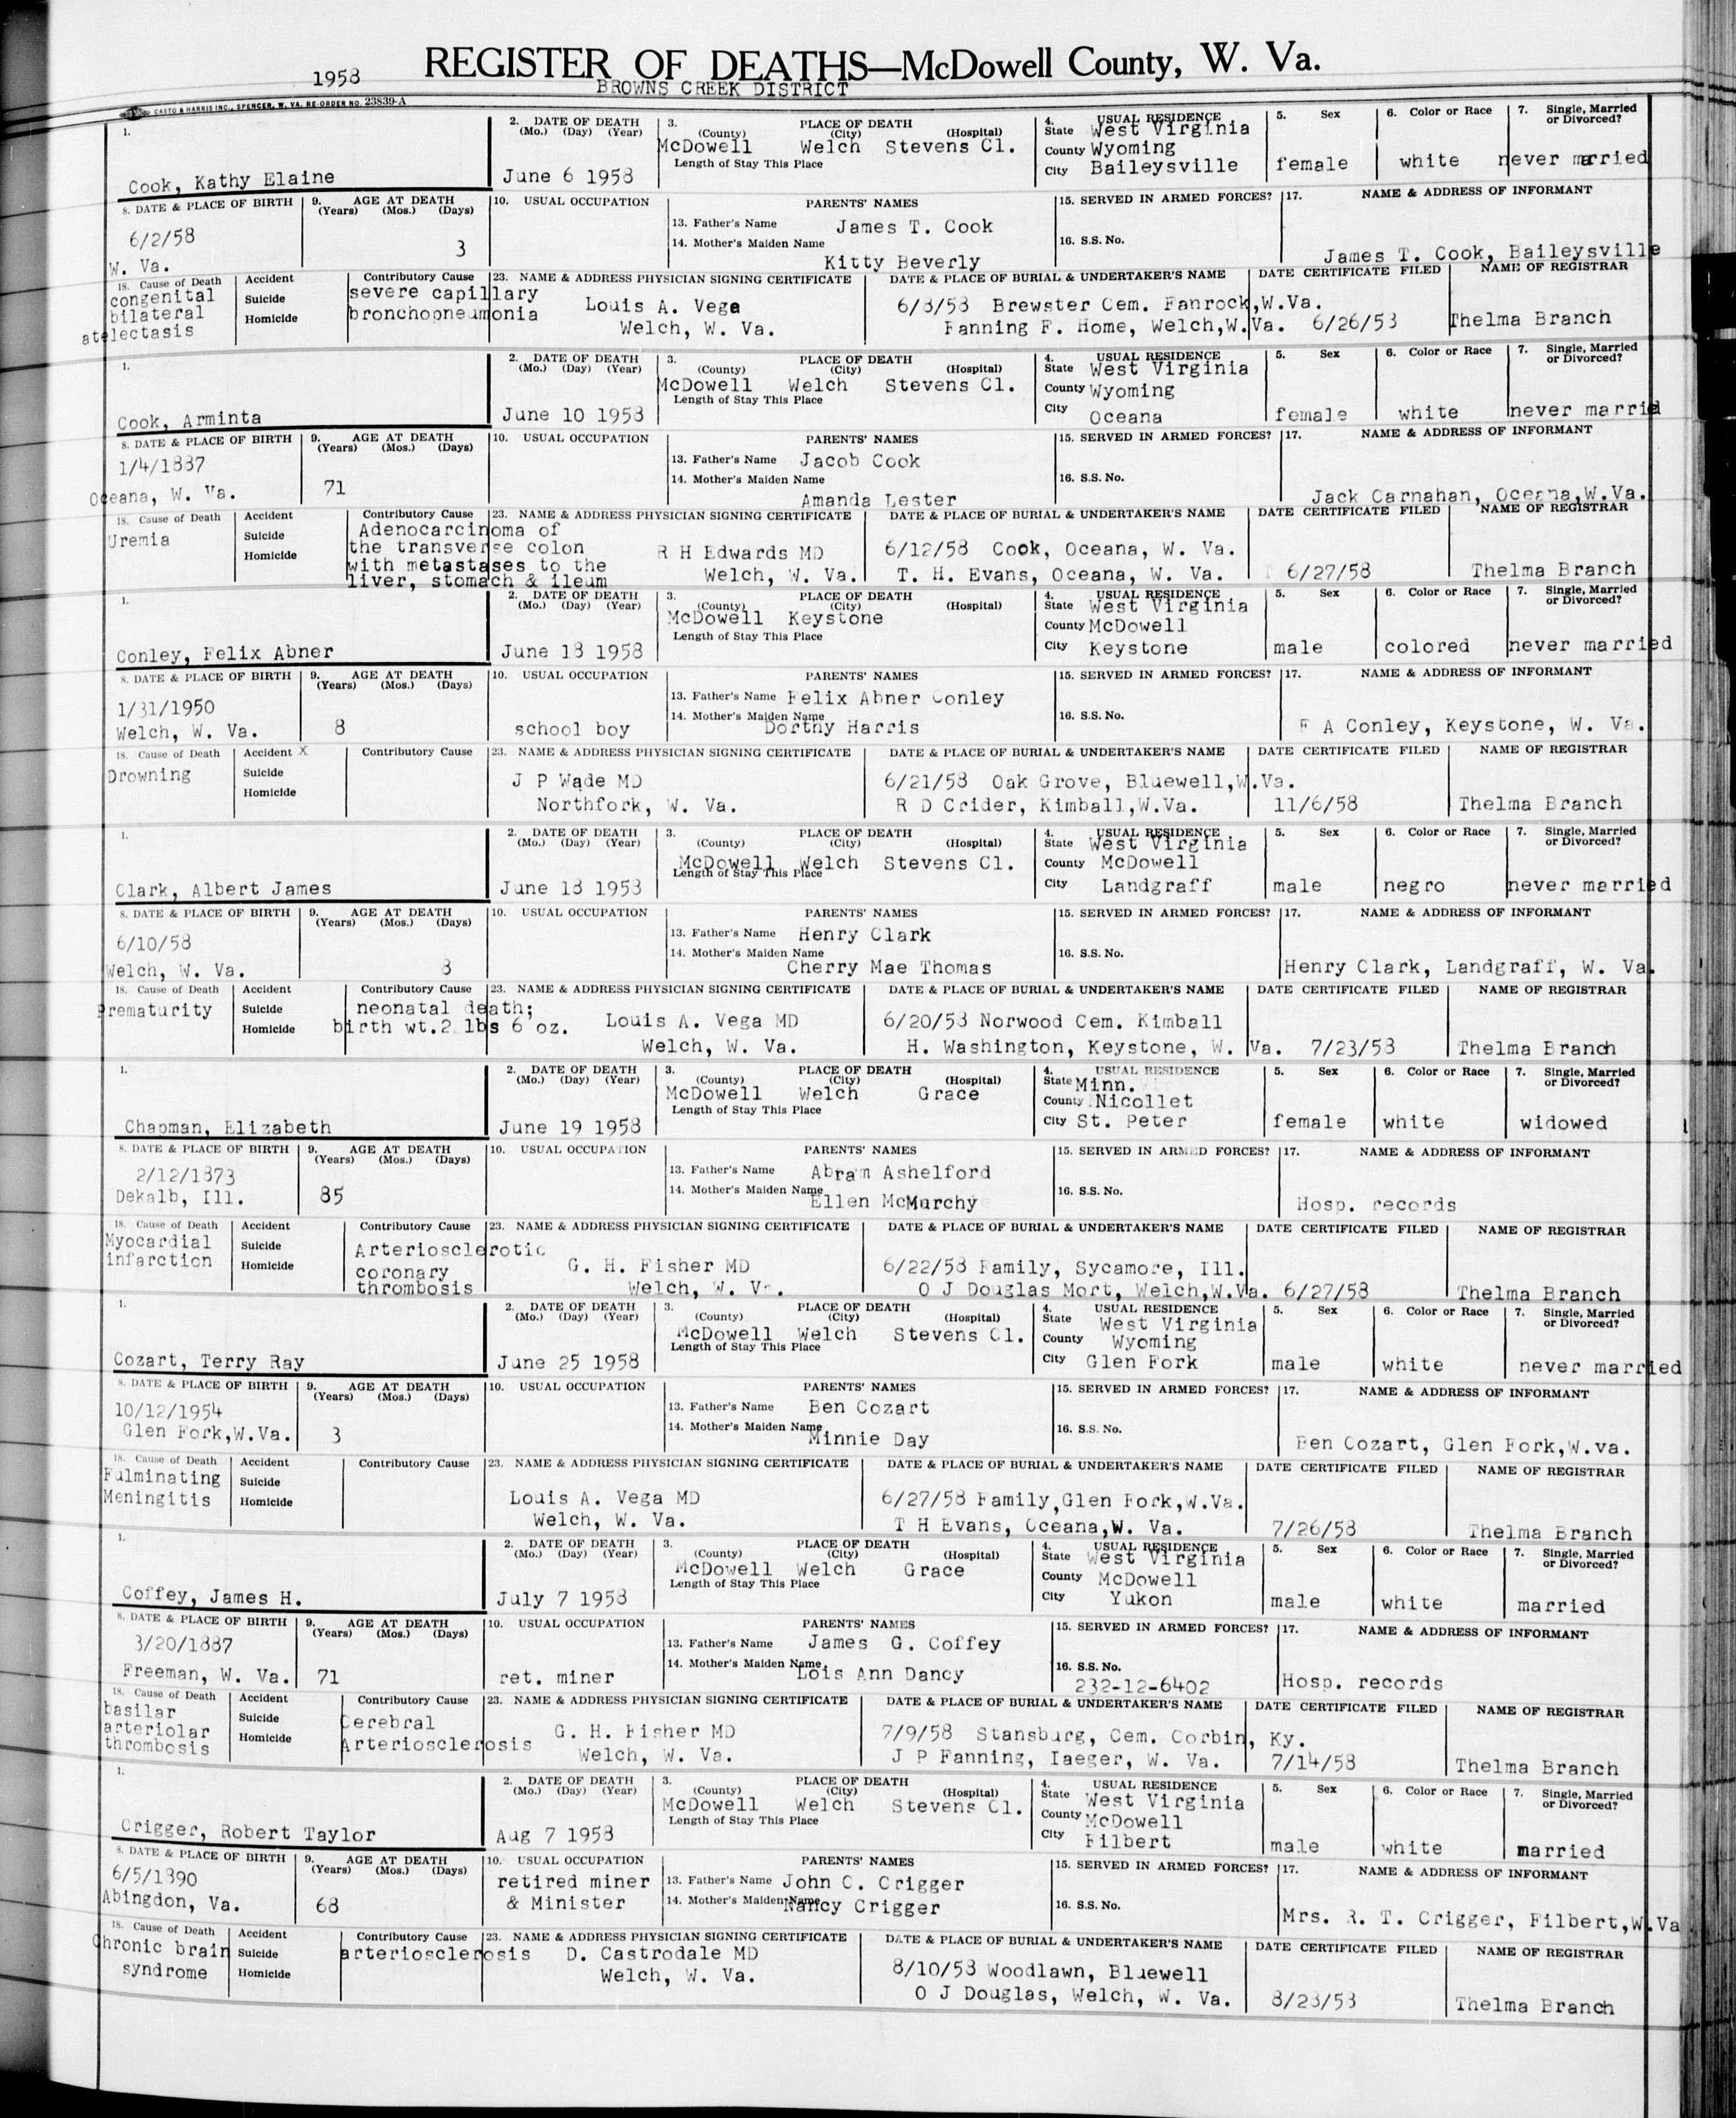 1958 REGISTER OF DEATHS—McDowell County, W. Va.
BROWNS CREEK DISTRICT
CASTO & HARRIS INC., SPENCER, W. VA. RE-ORDER NO. 23839-A
1. Cook, Kathy Elaine
2. DATE OF DEATH (Mo.) (Day) (Year) June 6 1958
3. PLACE OF DEATH (County) (City) (Hospital) McDowell Welch Stevens Cl.
Length of Stay This Place
4. USUAL RESIDENCE State West Virginia
County Wyoming
City Baileysville
5. Sex female
6. Color or Race white
7. Single, Married or Divorced? never married
8. DATE & PLACE OF BIRTH 6/2/58
W. Va.
9. AGE AT DEATH (Years) (Mos.) (Days) 3
10. USUAL OCCUPATION
PARENTS' NAMES
13. Father's Name James T. Cook
14. Mother's Maiden Name Kitty Beverly
15. SERVED IN ARMED FORCES?
16. S.S. No.
17. NAME & ADDRESS OF INFORMANT James T. Cook, Baileysville
18. Cause of Death congenital bilateral atelectasis
Accident
Suicide
Homicide
Contributory Cause severe capillary bronchopneumonia
23. NAME & ADDRESS PHYSICIAN SIGNING CERTIFICATE Louis A. Vega
Welch, W. Va.
DATE & PLACE OF BURIAL & UNDERTAKER'S NAME 6/8/58 Brewster Cem. Fanrock,W.Va.
Fanning F. Home, Welch,W.Va.
DATE CERTIFICATE FILED 6/26/58
NAME OF REGISTRAR Thelma Branch
1. Cook, Arminta
2. DATE OF DEATH (Mo.) (Day) (Year) June 10 1958
3. PLACE OF DEATH (County) (City) (Hospital) McDowell Welch Stevens Cl.
Length of Stay This Place
4. USUAL RESIDENCE State West Virginia
County Wyoming
City Oceana
5. Sex female
6. Color or Race white
7. Single, Married or Divorced? never married
8. DATE & PLACE OF BIRTH 1/4/1887
Oceana, W. Va.
9. AGE AT DEATH (Years) (Mos.) (Days) 71
10. USUAL OCCUPATION
PARENTS' NAMES
13. Father's Name Jacob Cook
14. Mother's Maiden Name Amanda Lester
15. SERVED IN ARMED FORCES?
16. S.S. No.
17. NAME & ADDRESS OF INFORMANT Jack Carnahan, Oceana,W.Va.
18. Cause of Death Uremia
Accident
Suicide
Homicide
Contributory Cause Adenocarcinoma of
the transverse colon
with metastases to the
liver, stomach & ileum
23. NAME & ADDRESS PHYSICIAN SIGNING CERTIFICATE R H Edwards MD
Welch, W. Va.
DATE & PLACE OF BURIAL & UNDERTAKER'S NAME 6/12/58 Cook, Oceana, W. Va.
T. H. Evans, Oceana, W. Va.
DATE CERTIFICATE FILED 6/27/58
NAME OF REGISTRAR Thelma Branch
1. Conley, Felix Abner
2. DATE OF DEATH (Mo.) (Day) (Year) June 18 1958
3. PLACE OF DEATH (County) (City) (Hospital) McDowell Keystone
Length of Stay This Place
4. USUAL RESIDENCE State West Virginia
County McDowell
City Keystone
5. Sex male
6. Color or Race colored
7. Single, Married or Divorced? never married
8. DATE & PLACE OF BIRTH 1/31/1950
Welch, W. Va.
9. AGE AT DEATH (Years) (Mos.) (Days) 8
10. USUAL OCCUPATION school boy
PARENTS' NAMES
13. Father's Name Felix Abner Conley
14. Mother's Maiden Name Dorthy Harris
15. SERVED IN ARMED FORCES?
16. S.S. No.
17. NAME & ADDRESS OF INFORMANT F A Conley, Keystone, W. Va.
18. Cause of Death Drowning
Accident X
Suicide
Homicide
Contributory Cause
23. NAME & ADDRESS PHYSICIAN SIGNING CERTIFICATE J P Wade MD
Northfork, W. Va.
DATE & PLACE OF BURIAL & UNDERTAKER'S NAME 6/21/58 Oak Grove, Bluewell,W.Va.
R D Crider, Kimball,W.Va.
DATE CERTIFICATE FILED 11/6/58
NAME OF REGISTRAR Thelma Branch
1. Clark, Albert James
2. DATE OF DEATH (Mo.) (Day) (Year) June 18 1958
3. PLACE OF DEATH (County) (City) (Hospital) McDowell Welch Stevens Cl.
Length of Stay This Place
4. USUAL RESIDENCE State West Virginia
County McDowell
City Landgraff
5. Sex male
6. Color or Race negro
7. Single, Married or Divorced? never married
8. DATE & PLACE OF BIRTH 6/10/58
Welch, W. Va.
9. AGE AT DEATH (Years) (Mos.) (Days) 8
10. USUAL OCCUPATION
PARENTS' NAMES
13. Father's Name Henry Clark
14. Mother's Maiden Name Cherry Mae Thomas
15. SERVED IN ARMED FORCES?
16. S.S. No.
17. NAME & ADDRESS OF INFORMANT Henry Clark, Landgraff, W. Va.
18. Cause of Death Prematurity
Accident
Suicide
Homicide
Contributory Cause neonatal death;
birth wt.2 lbs 6 oz.
23. NAME & ADDRESS PHYSICIAN SIGNING CERTIFICATE Louis A. Vega MD
Welch, W. Va.
DATE & PLACE OF BURIAL & UNDERTAKER'S NAME 6/20/58 Norwood Cem. Kimball
H. Washington, Keystone, W. Va.
DATE CERTIFICATE FILED 7/23/58
NAME OF REGISTRAR Thelma Branch
1. Chapman, Elizabeth
2. DATE OF DEATH (Mo.) (Day) (Year) June 19 1958
3. PLACE OF DEATH (County) (City) (Hospital) McDowell Welch Grace
Length of Stay This Place
4. USUAL RESIDENCE State Minn.
County Nicollet
City St. Peter
5. Sex female
6. Color or Race white
7. Single, Married or Divorced? widowed
8. DATE & PLACE OF BIRTH 2/12/1873
Dekalb, Ill.
9. AGE AT DEATH (Years) (Mos.) (Days) 85
10. USUAL OCCUPATION
PARENTS' NAMES
13. Father's Name Abram Ashelford
14. Mother's Maiden Name Ellen McMurchy
15. SERVED IN ARMED FORCES?
16. S.S. No.
17. NAME & ADDRESS OF INFORMANT Hosp. records
18. Cause of Death Myocardial infarction
Accident
Suicide
Homicide
Contributory Cause Arteriosclerotic
coronary
thrombosis
23. NAME & ADDRESS PHYSICIAN SIGNING CERTIFICATE G. H. Fisher MD
Welch, W. Va.
DATE & PLACE OF BURIAL & UNDERTAKER'S NAME 6/22/58 Family, Sycamore, Ill.
O J Douglas Mort, Welch,W.Va.
DATE CERTIFICATE FILED 6/27/58
NAME OF REGISTRAR Thelma Branch
1. Cozart, Terry Ray
2. DATE OF DEATH (Mo.) (Day) (Year) June 25 1958
3. PLACE OF DEATH (County) (City) (Hospital) McDowell Welch Stevens Cl.
Length of Stay This Place
4. USUAL RESIDENCE State West Virginia
County Wyoming
City Glen Fork
5. Sex male
6. Color or Race white
7. Single, Married or Divorced? never married
8. DATE & PLACE OF BIRTH 10/12/1954
Glen Fork,W.Va.
9. AGE AT DEATH (Years) (Mos.) (Days) 3
10. USUAL OCCUPATION
PARENTS' NAMES
13. Father's Name Ben Cozart
14. Mother's Maiden Name Minnie Day
15. SERVED IN ARMED FORCES?
16. S.S. No.
17. NAME & ADDRESS OF INFORMANT Ben Cozart, Glen Fork,W.va.
18. Cause of Death Fulminating Meningitis
Accident
Suicide
Homicide
Contributory Cause
23. NAME & ADDRESS PHYSICIAN SIGNING CERTIFICATE Louis A. Vega MD
Welch, W. Va.
DATE & PLACE OF BURIAL & UNDERTAKER'S NAME 6/27/58 Family,Glen Fork,W.Va.
T H Evans, Oceana,W. Va.
DATE CERTIFICATE FILED 7/26/58
NAME OF REGISTRAR Thelma Branch
1. Coffey, James H.
2. DATE OF DEATH (Mo.) (Day) (Year) July 7 1958
3. PLACE OF DEATH (County) (City) (Hospital) McDowell Welch Grace
Length of Stay This Place
4. USUAL RESIDENCE State West Virginia
County McDowell
City Yukon
5. Sex male
6. Color or Race white
7. Single, Married or Divorced? married
8. DATE & PLACE OF BIRTH 3/20/1887
Freeman, W. Va.
9. AGE AT DEATH (Years) (Mos.) (Days) 71
10. USUAL OCCUPATION ret. miner
PARENTS' NAMES
13. Father's Name James G. Coffey
14. Mother's Maiden Name Lois Ann Dancy
15. SERVED IN ARMED FORCES?
16. S.S. No. 232-12-6402
17. NAME & ADDRESS OF INFORMANT Hosp. records
18. Cause of Death basilar arteriolar thrombosis
Accident
Suicide
Homicide
Contributory Cause Cerebral
Arteriosclerosis
23. NAME & ADDRESS PHYSICIAN SIGNING CERTIFICATE G. H. Fisher MD
Welch, W. Va.
DATE & PLACE OF BURIAL & UNDERTAKER'S NAME 7/9/58 Stansburg, Cem. Corbin, Ky.
J P Fanning, Iaeger, W. Va.
DATE CERTIFICATE FILED 7/14/58
NAME OF REGISTRAR Thelma Branch
1. Crigger, Robert Taylor
2. DATE OF DEATH (Mo.) (Day) (Year) Aug 7 1958
3. PLACE OF DEATH (County) (City) (Hospital) McDowell Welch Stevens Cl.
Length of Stay This Place
4. USUAL RESIDENCE State West Virginia
County McDowell
City Filbert
5. Sex male
6. Color or Race white
7. Single, Married or Divorced? married
8. DATE & PLACE OF BIRTH 6/5/1890
Abingdon, Va.
9. AGE AT DEATH (Years) (Mos.) (Days) 68
10. USUAL OCCUPATION retired miner
& Minister
PARENTS' NAMES
13. Father's Name John C. Crigger
14. Mother's Maiden Name Nancy Crigger
15. SERVED IN ARMED FORCES?
16. S.S. No.
17. NAME & ADDRESS OF INFORMANT Mrs. R. T. Crigger, Filbert,W.Va
18. Cause of Death Chronic brain syndrome
Accident
Suicide
Homicide
Contributory Cause arteriosclerosis
23. NAME & ADDRESS PHYSICIAN SIGNING CERTIFICATE D. Castrodale MD
Welch, W. Va.
DATE & PLACE OF BURIAL & UNDERTAKER'S NAME 8/10/58 Woodlawn, Bluewell
O J Douglas, Welch, W. Va.
DATE CERTIFICATE FILED 8/23/58
NAME OF REGISTRAR Thelma Branch